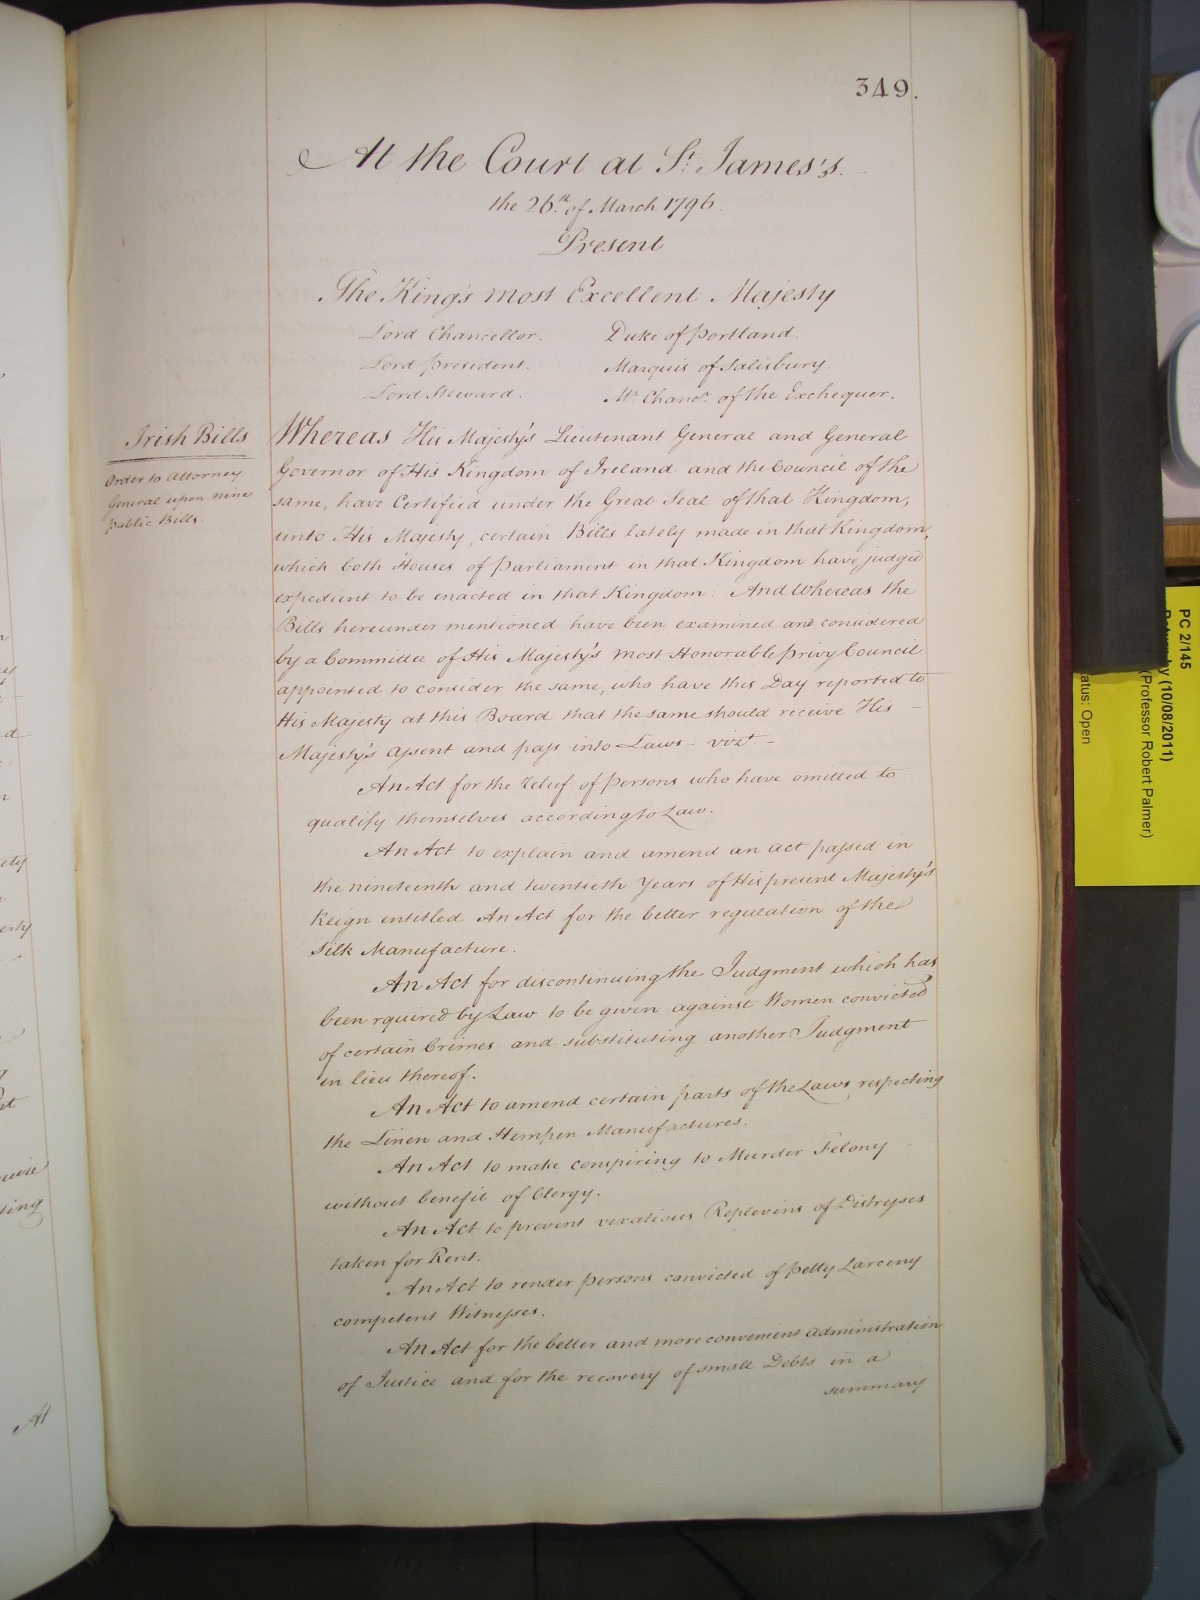 349.
At the Court at St. James's.
the 26th of March 1796.
Present
The King's most Excellent Majesty
Lord Chancellor. Duke of Portland.
Lord President. Marquis of Salisbury.
Lord Steward. Mr Chancr. of the Exchequer.
Irish Bills
Order to Attorney
General upon nine
Public Bills.
Whereas His Majesty's Lieutenant General and General
Governor of His Kingdom of Ireland and the Council of the
same, have Certified under the Great Seal of that Kingdom,
unto His Majesty, certain Bills lately made in that Kingdom,
which both Houses of Parliament in that Kingdom have judged
expedient to be enacted in that Kingdom: And Whereas the
Bills hereunder mentioned have been examined and considered
by a Committee of His Majesty's most Honorable Privy Council
appointed to consider the same, who have this Day reported to
His Majesty at this Board that the same should receive His –
Majesty's Assent and pass into Laws – vizt –
An Act for the relief of Persons who have omitted to
qualify themselves according to Law.
An Act to explain and amend an act passed in
the nineteenth and twentieth Years of His present Majesty's
Reign entitled An Act for the better regulation of the
Silk Manufacture.
An Act for discontinuing the Judgment which has
been rquired by Law to be given against Women convicted
of certain Crimes and substituting another Judgment
in lieu thereof.
An Act to amend certain parts of the Laws respecting
the Linen and Hempen Manufactures.
An Act to make conspiring to Murder Felony
without benefit of Clergy.
An Act to prevent vexatious Replevins of Distresses
taken for Rent.
An Act to render persons convicted of Petty Larceny
competent Witnesses.
An Act for the better and more convenient administration
of Justice and for the recovery of small Debts in a
summary
At
PC 2/145
(10/08/2011)
(Professor Robert Palmer)
atus: Open